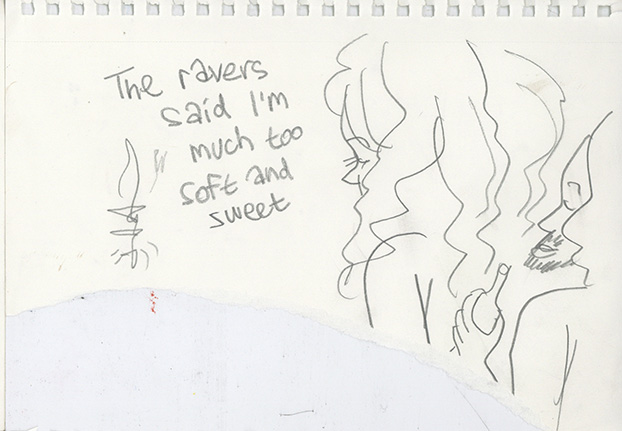 The ravers
said I'm
much too
soft and
sweet